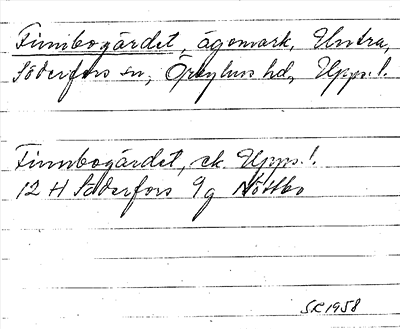 Finnbogärdet, ägomark, Untra,
Söderfors sn, Örbyhus hd, Upps. l.
Finnbogärdet, ek. Upps. l.
12 H Söderfors 9g Nöttbo
SR 1958